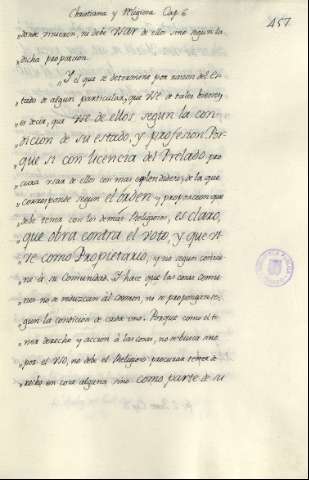 Christiana y Religiosa Cap. 6
457
donde vivieren, ni debe usar de ellos sino segun la
dicha proporcion.
„Y el que se determina por razon del es-
„tado de algun particular, que use de tales bienes,
„es decir, que use de ellos segun la con-
„dicion de su estado, y profesion. Por-
„que si con licencia del Prelado, pro-
„cura usar de ellos con mas esplendidez de la que
„corresponde segun el orden, y proporcion que
„debe tener con los demás Religiosos, es claro,
„que obra contra el voto, y que vi-
„ve como Propietario, y no segun convie-
„ne à su Comunidad. Y hace que las cosas comu-
„nes no se reduzcan al comun, ni se proporcionen se-
„gun la condicion de cada uno. Porque como el te-
„ner derecho y accion à las cosas, no se busca sino
„por el uso, no debe el Religioso procurar tener de-
„recho en cosa alguna sino como parte de su